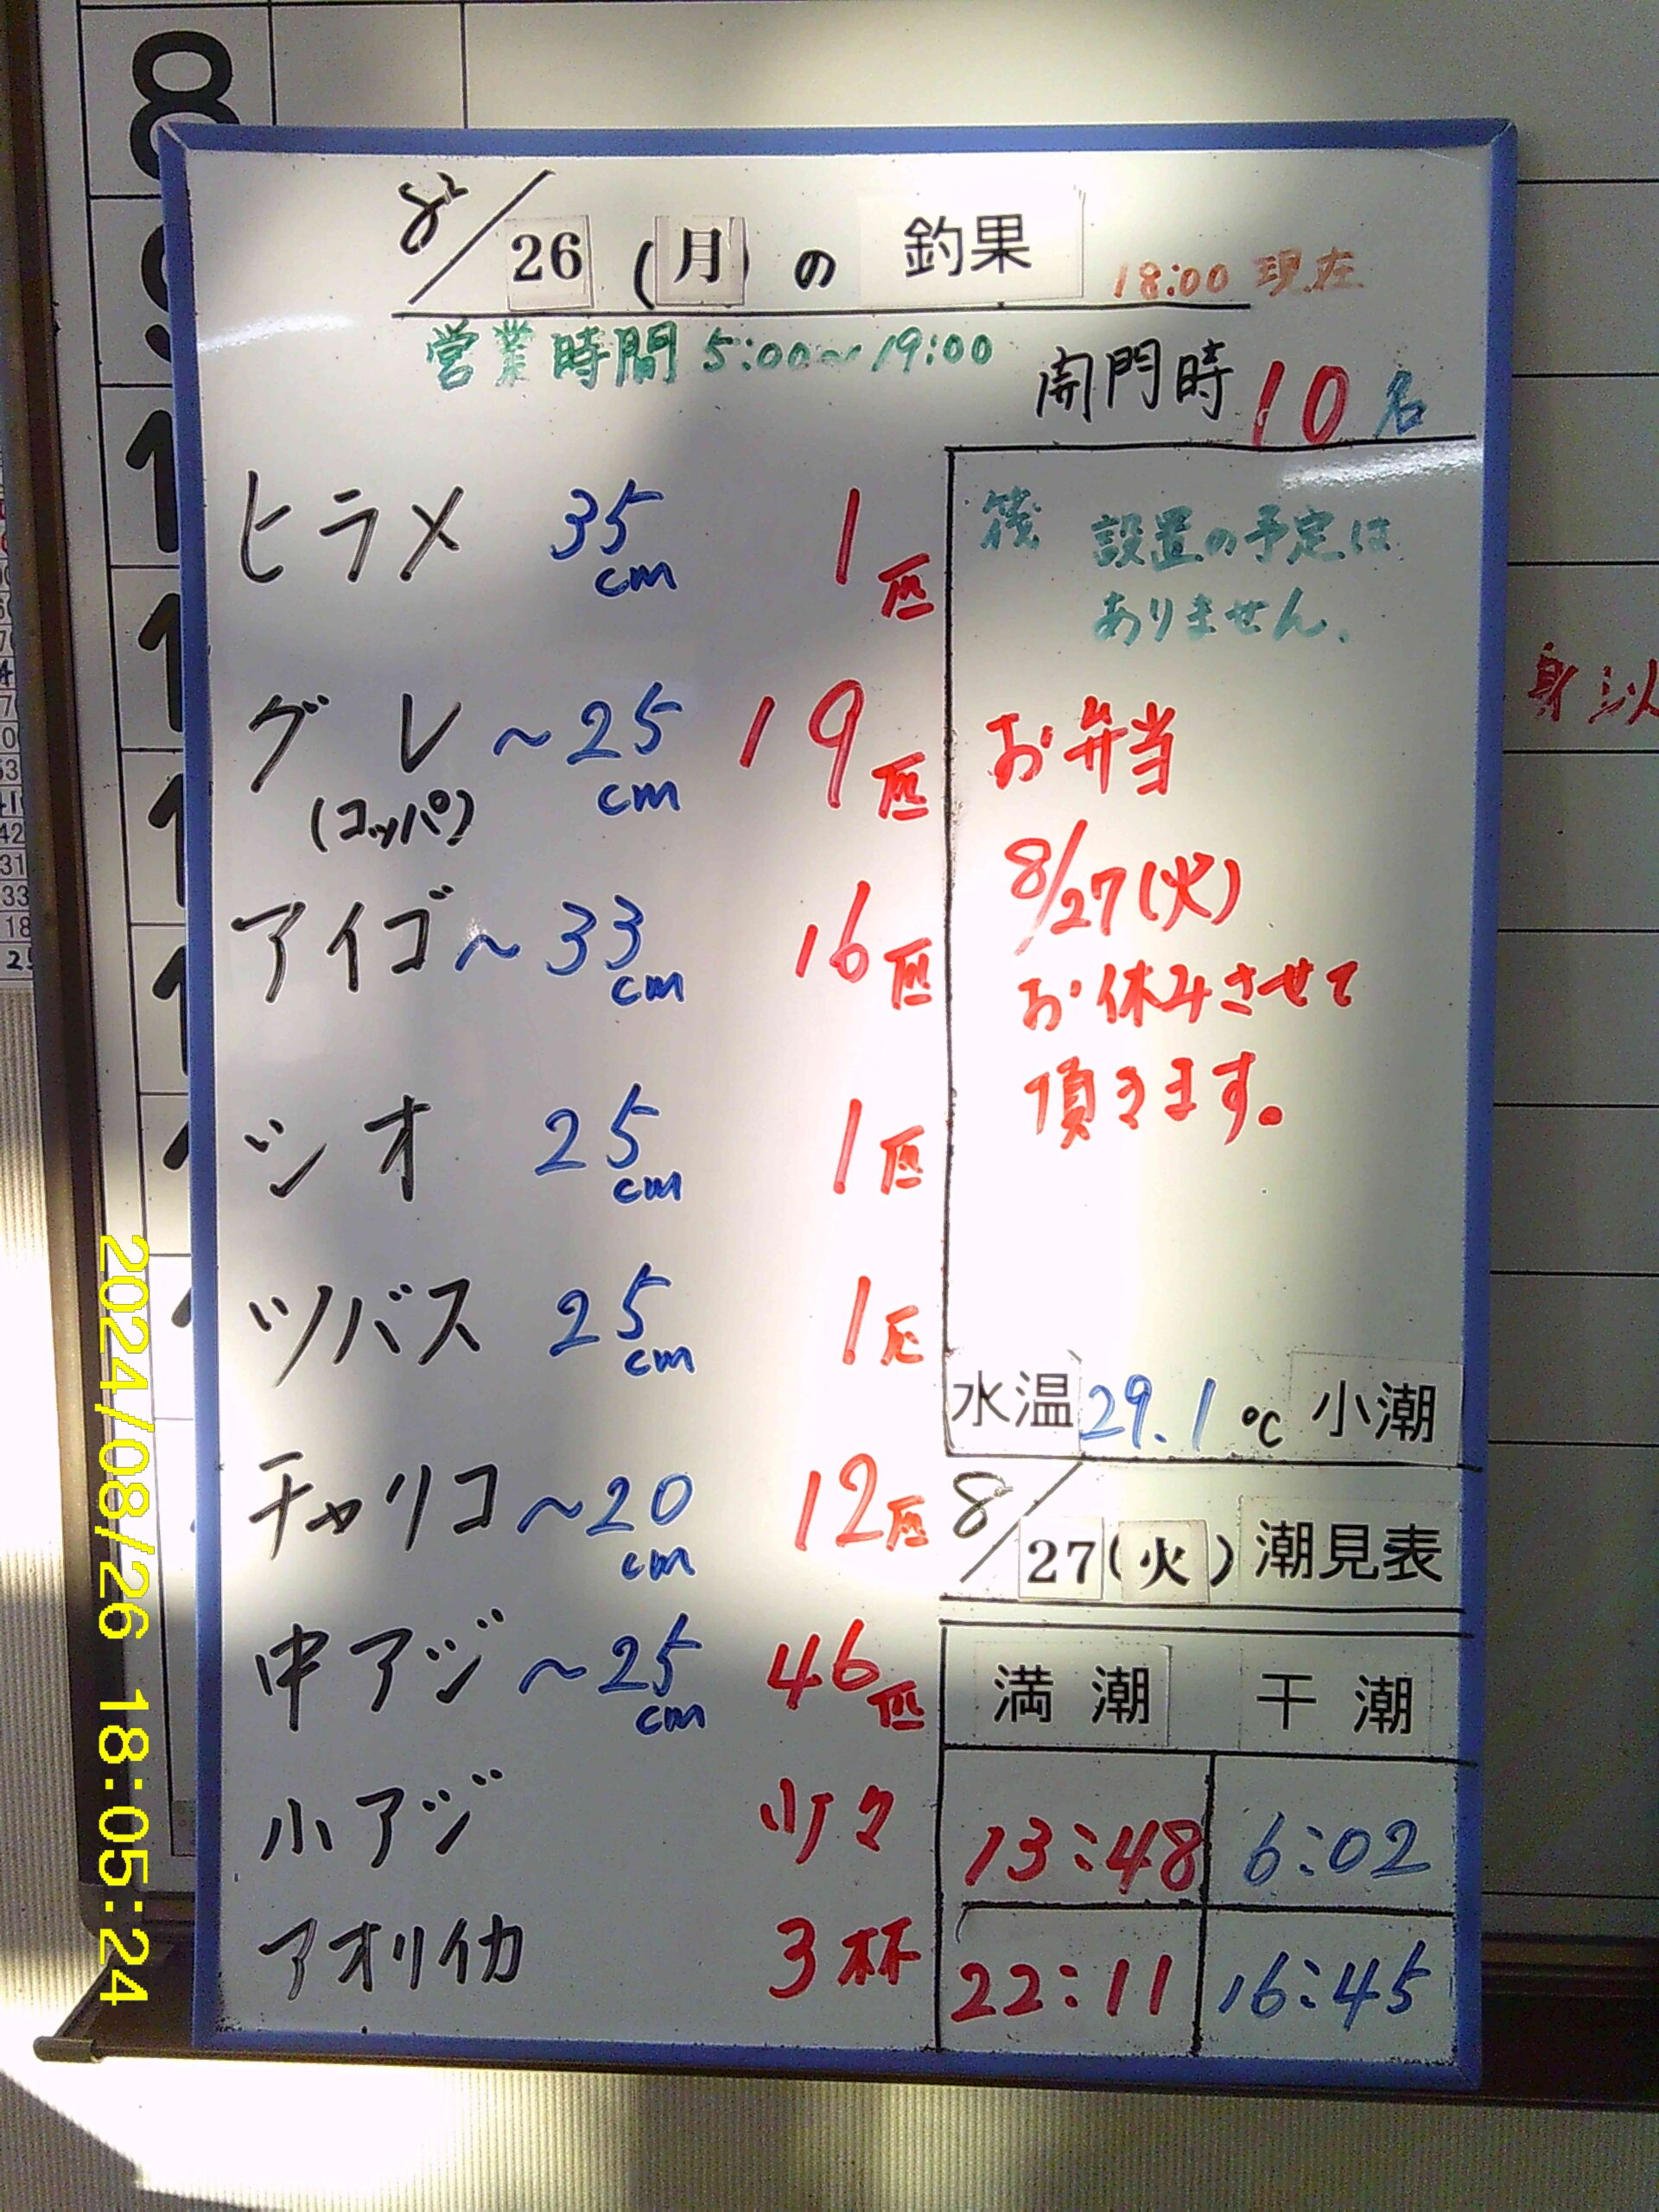 8/26(月)の釣果 18:00現在
営業時間 5:00～19:00
開門時 10名
ヒラメ 35cm 1匹
グレ ～25cm 19匹
(コッパ)
アイゴ ～33cm 16匹
シオ 25cm 1匹
ツバス 25cm 1匹
チャリコ ～20cm 12匹
中アジ ～25cm 46匹
小アジ 少々
アオリイカ 3杯
筏 設置の予定は
ありません.
お弁当
8/27(火)
お休みさせて
頂きます。
水温 29.1℃ 小潮
8/27(火)潮見表
満潮 干潮
13:48 6:02
22:11 16:45
2024/08/26 18:05:24
8
身以